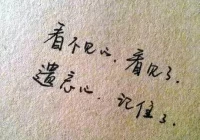 看不见心、看见了。
遗忘心、记住了。